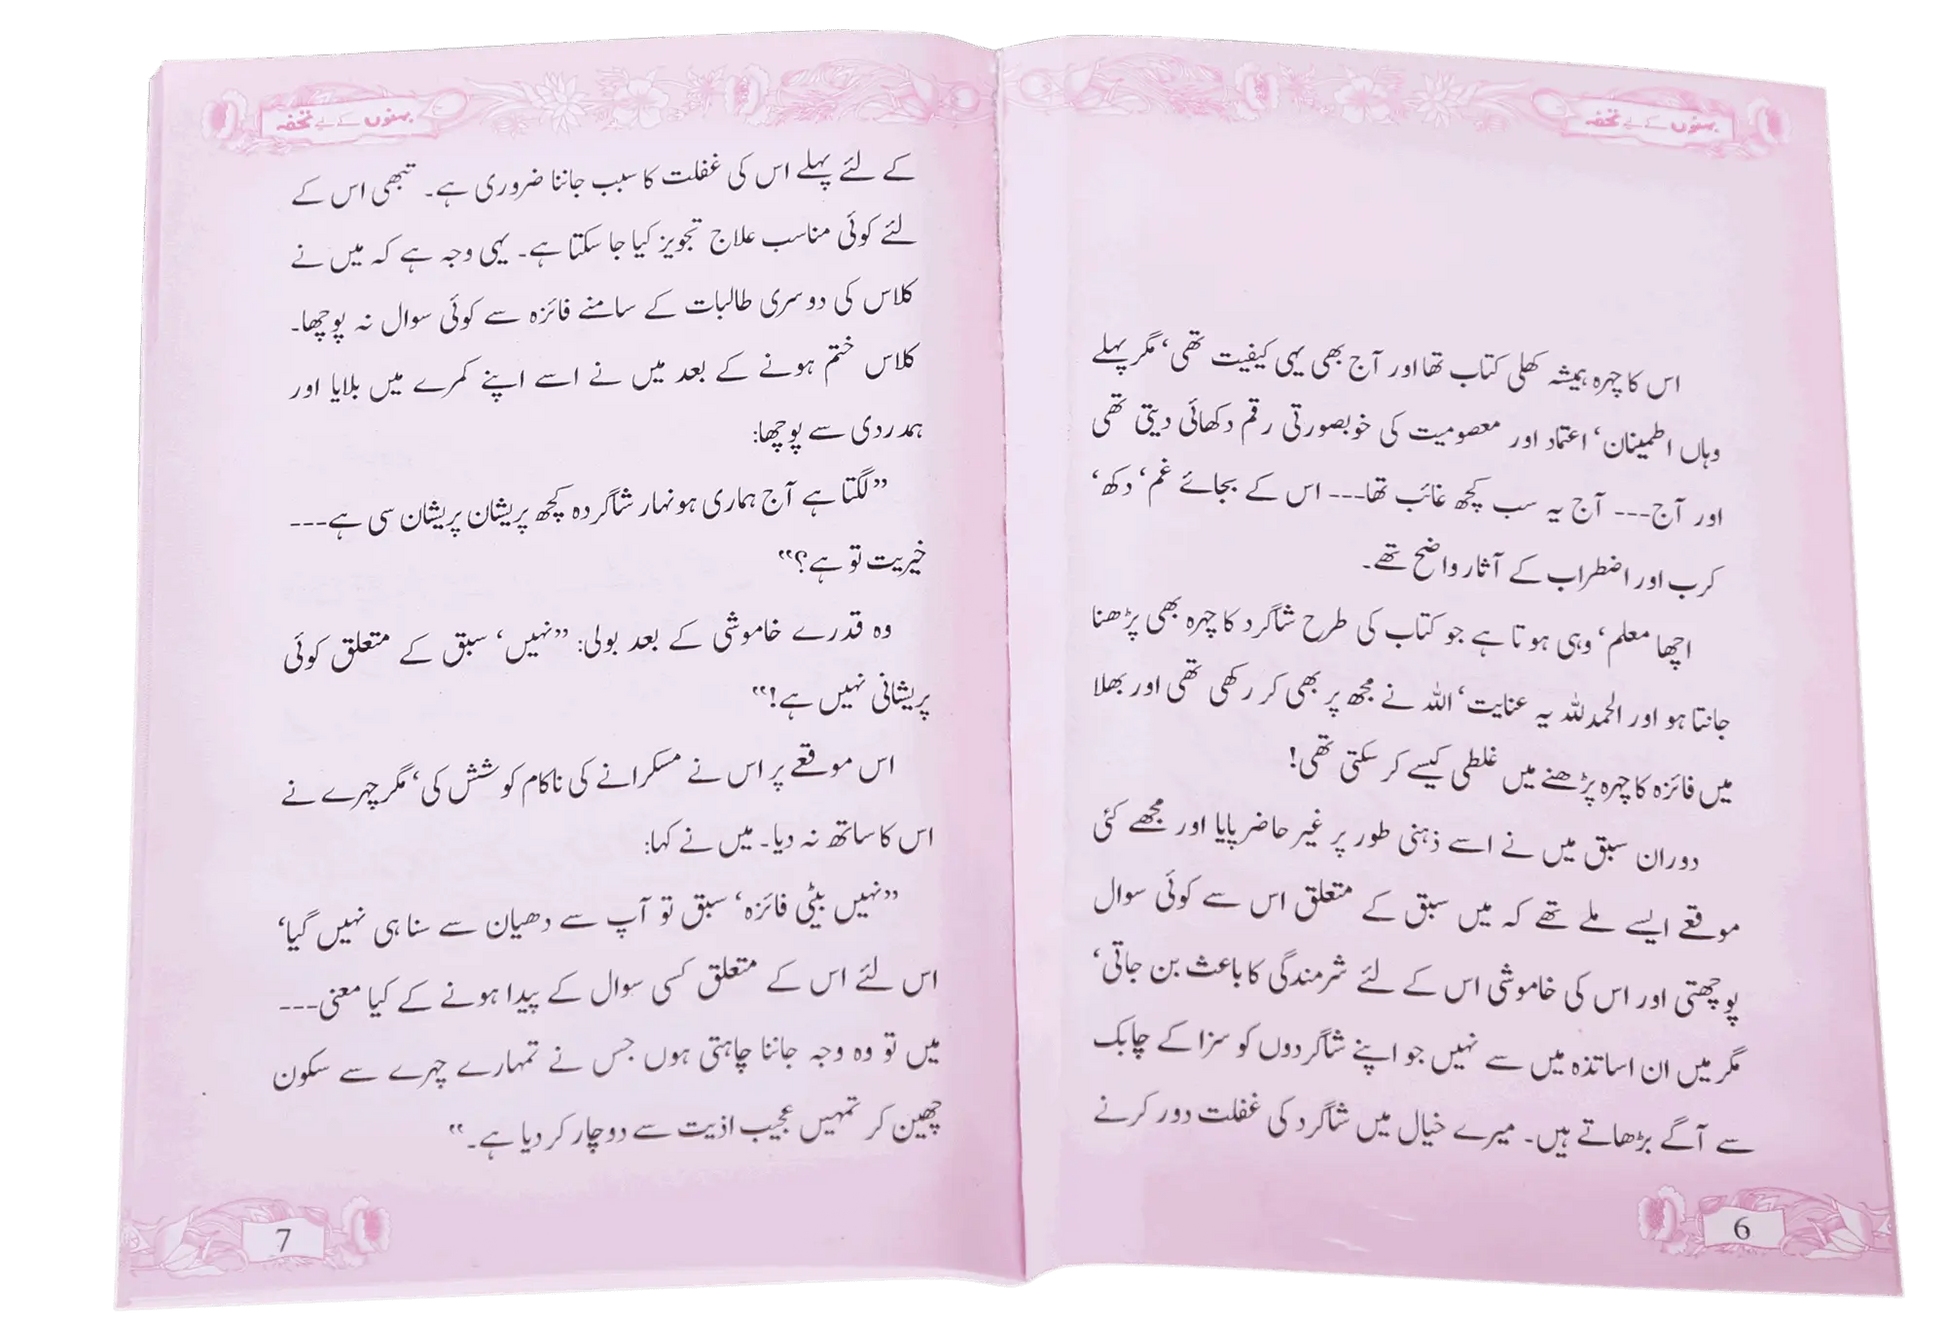 بہنوں کے لیے تحفہ
اس کا چہرہ ہمیشہ کھلی کتاب تھا اور آج بھی یہی کیفیت تھی‘ مگر پہلے
وہاں اطمینان‘ اعتماد اور معصومیت کی خوبصورتی رقم دکھائی دیتی تھی
اور آج--- آج یہ سب کچھ غائب تھا--- اس کے بجائے غم‘ دکھ‘
کرب اور اضطراب کے آثار واضح تھے۔
اچھا معلم‘ وہی ہوتا ہے جو کتاب کی طرح شاگرد کا چہرہ بھی پڑھنا
جانتا ہو اور الحمدللہ یہ عنایت‘ اللہ نے مجھ پر بھی کر رکھی تھی اور بھلا
میں فائزہ کا چہرہ پڑھنے میں غلطی کیسے کر سکتی تھی!
دوران سبق میں نے اسے ذہنی طور پر غیر حاضر پایا اور مجھے کئی
موقعے ایسے ملے تھے کہ میں سبق کے متعلق اس سے کوئی سوال
پوچھتی اور اس کی خاموشی اس کے لئے شرمندگی کا باعث بن جاتی‘
مگر میں ان اساتذہ میں سے نہیں جو اپنے شاگردوں کو سزا کے چابک
سے آگے بڑھاتے ہیں۔ میرے خیال میں شاگرد کی غفلت دور کرنے
6
بہنوں کے لیے تحفہ
کے لئے پہلے اس کی غفلت کا سبب جاننا ضروری ہے۔ تبھی اس کے
لئے کوئی مناسب علاج تجویز کیا جا سکتا ہے۔ یہی وجہ ہے کہ میں نے
کلاس کی دوسری طالبات کے سامنے فائزہ سے کوئی سوال نہ پوچھا۔
کلاس ختم ہونے کے بعد میں نے اسے اپنے کمرے میں بلایا اور
ہمدردی سے پوچھا:
”لگتا ہے آج ہماری ہونہار شاگردہ کچھ پریشان پریشان سی ہے---
خیریت تو ہے؟“
وہ قدرے خاموشی کے بعد بولی: ”نہیں‘ سبق کے متعلق کوئی
پریشانی نہیں ہے!“
اس موقعے پر اس نے مسکرانے کی ناکام کوشش کی‘ مگر چہرے نے
اس کا ساتھ نہ دیا۔ میں نے کہا:
”نہیں بیٹی فائزہ‘ سبق تو آپ سے دھیان سے سنا ہی نہیں گیا‘
اس لئے اس کے متعلق کسی سوال کے پیدا ہونے کے کیا معنی---
میں تو وہ وجہ جاننا چاہتی ہوں جس نے تمہارے چہرے سے سکون
چھین کر تمہیں عجیب اذیت سے دوچار کر دیا ہے۔“
7